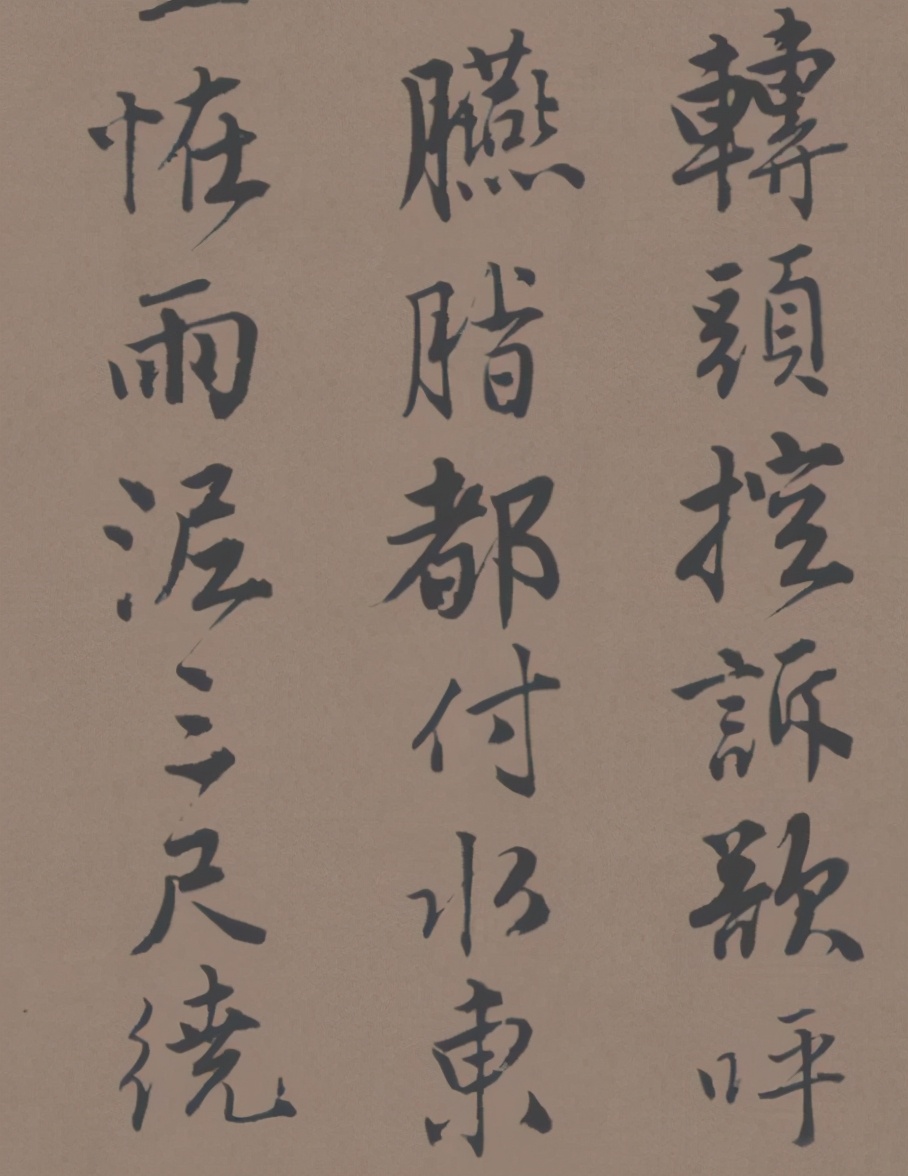 轉頭控訴呼
臙脂都付水東
恠雨泥三尺繞